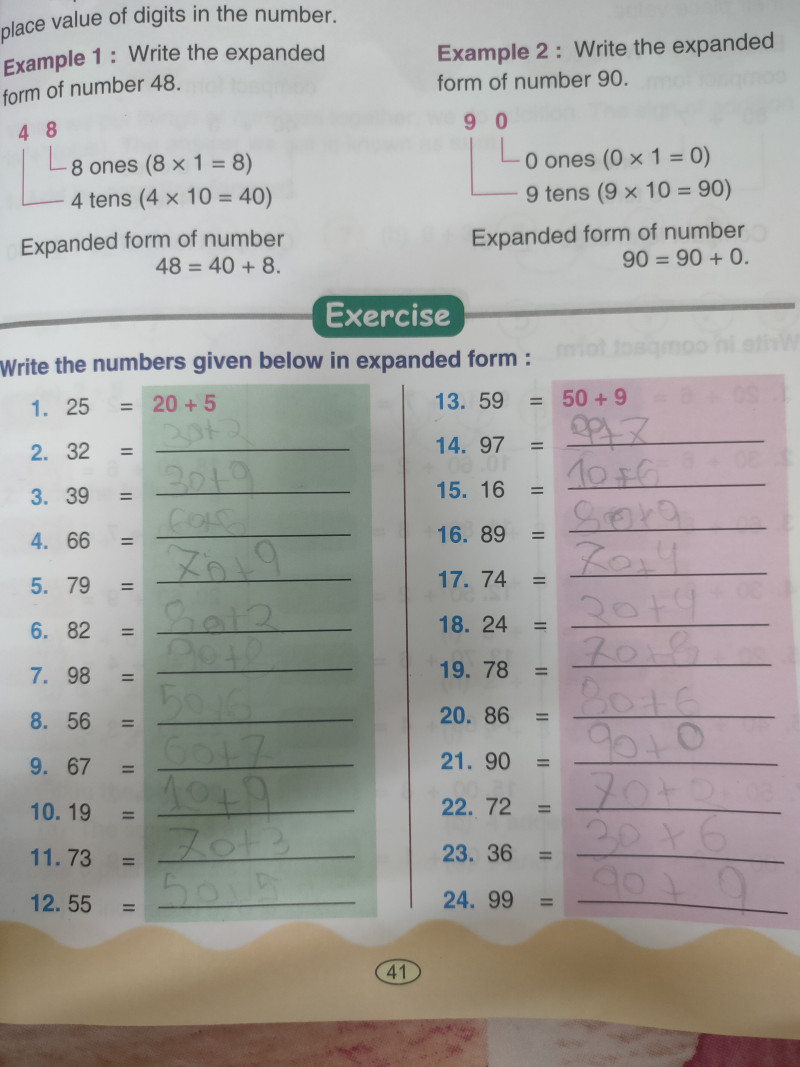 place value of digits in the number.
Example 1 : Write the expanded
form of number 48.
4 8
8 ones (8 × 1 = 8)
4 tens (4 × 10 = 40)
Expanded form of number
48 = 40 + 8.
Example 2 : Write the expanded
form of number 90.
9 0
0 ones (0 × 1 = 0)
9 tens (9 × 10 = 90)
Expanded form of number
90 = 90 + 0.
Exercise
Write the numbers given below in expanded form :
1. 25 = 20 + 5
2. 32 = 30+2
3. 39 = 30+9
4. 66 = 60+6
5. 79 = 70+9
6. 82 = 80+2
7. 98 = 90+8
8. 56 = 50+6
9. 67 = 60+7
10. 19 = 10+9
11. 73 = 70+3
12. 55 = 50+5
13. 59 = 50 + 9
14. 97 = +7
15. 16 = 10+6
16. 89 = 80+9
17. 74 = 70+4
18. 24 = 20+4
19. 78 = 70+8
20. 86 = 80+6
21. 90 = 90+0
22. 72 = 70+2
23. 36 = 30+6
24. 99 = 90+9
41